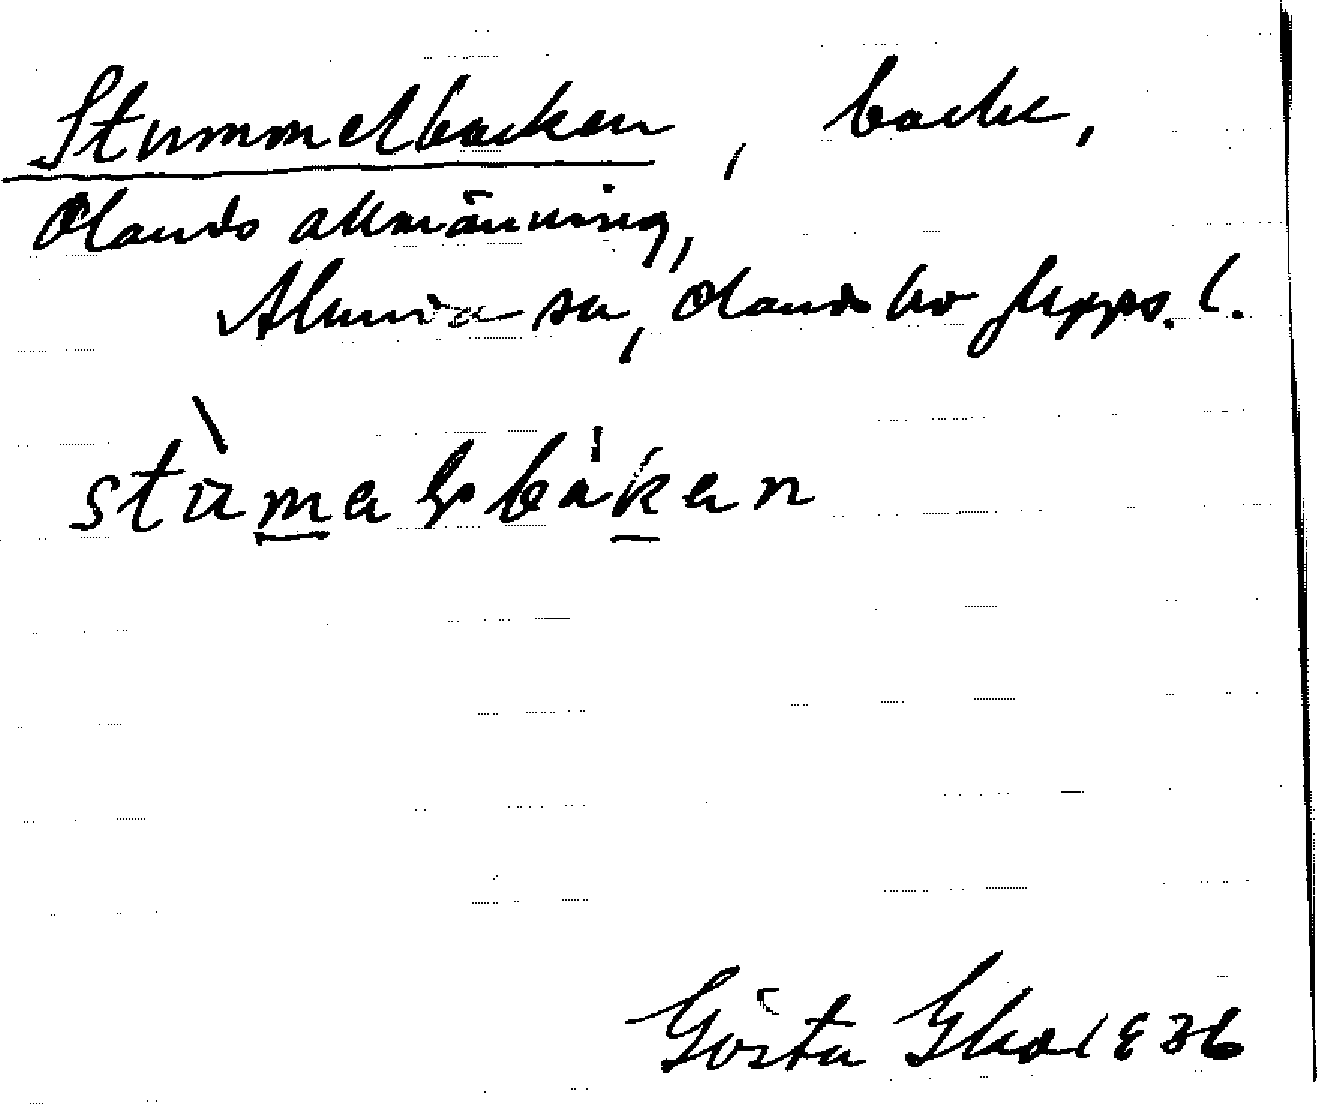 Stummelbacken, backe,
Olands allmänning,
Alunda sn, Olands hd Upps. l.
stùmalbákan
Gösta Eko 1936